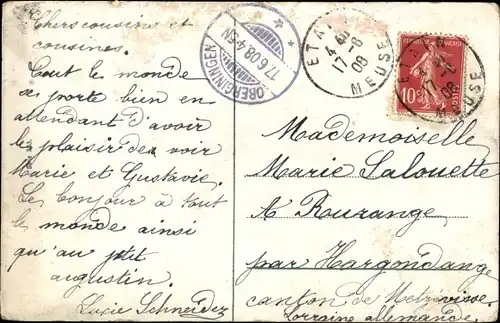 Chers cousins et
cousines.
Tout le monde
se porte bien en
attendant d'avoir
le plaisir de voir
Marie et Gustavie.
Le bonjour à tout
le monde ainsi
qu'au ptit
augustin.
Lucie Schneider
OBERGININGEN
17.6.08 4-5N
ETA
17-6
08
MEUSE
10c
MEUSE
Mademoiselle
Marie Lalouette
A Rurange
par Hargondange
canton de
Lorraine allemande.